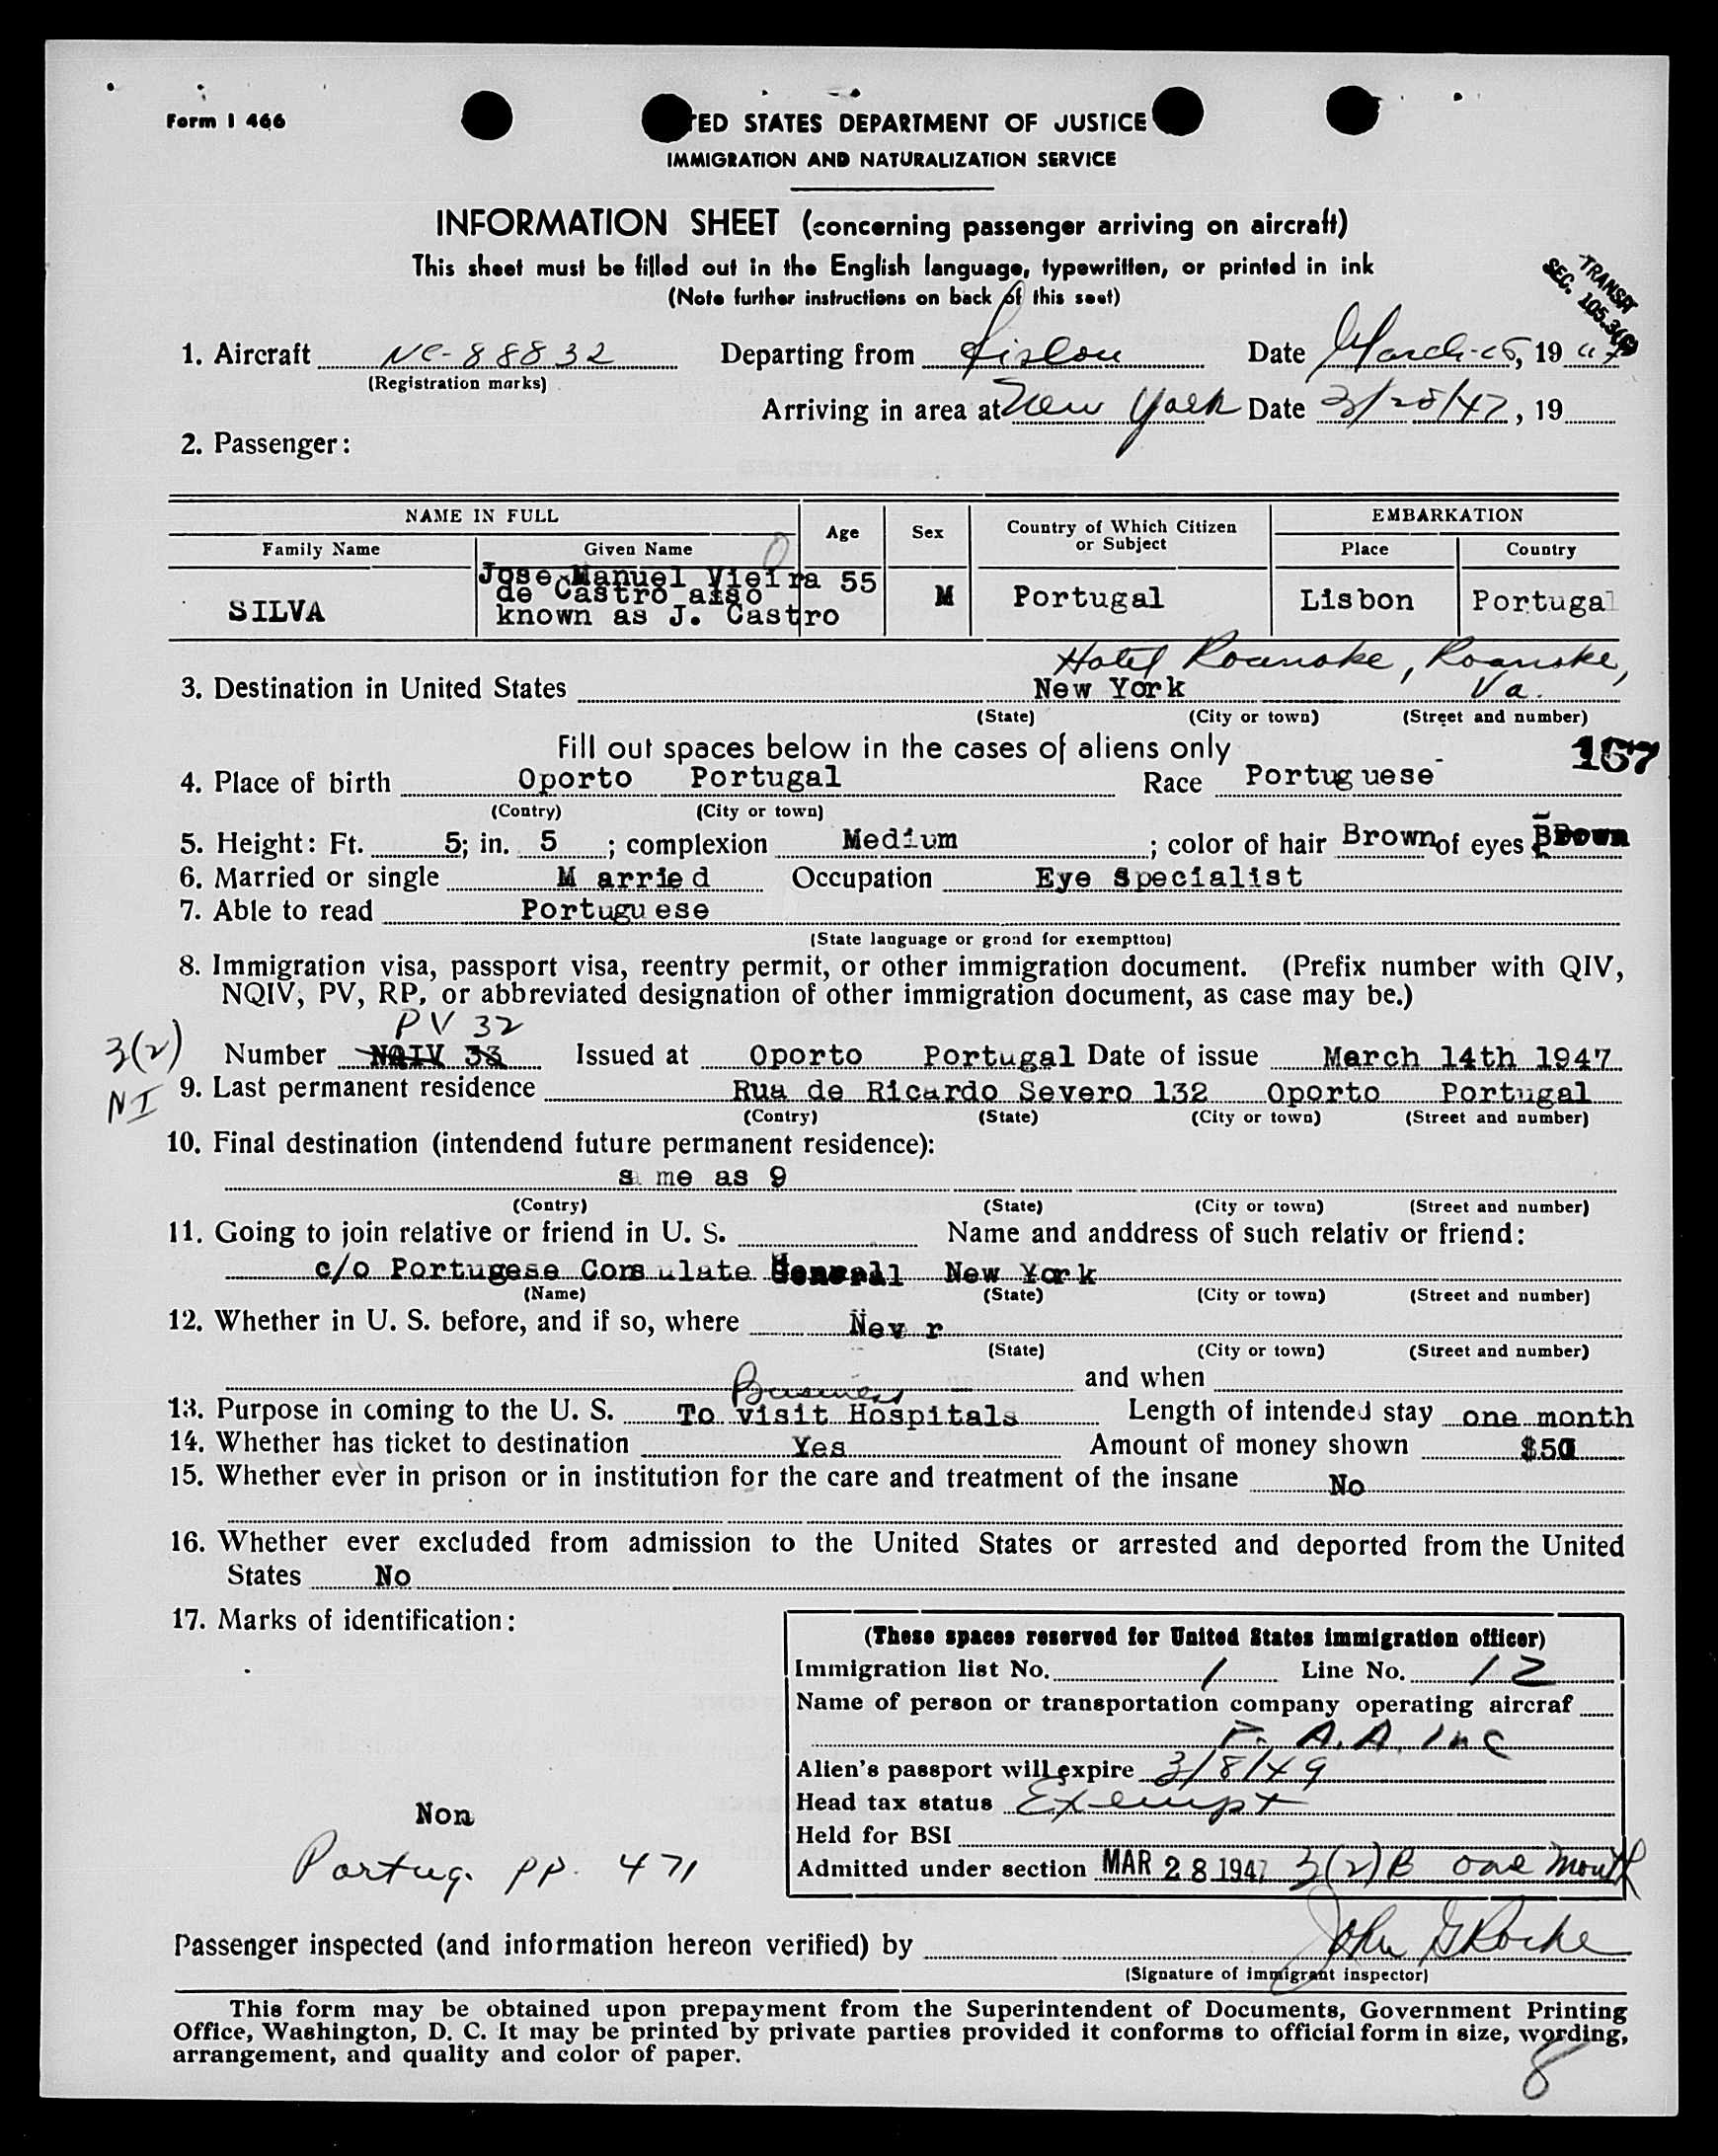 Form I 466
TED STATES DEPARTMENT OF JUSTICE
IMMIGRATION AND NATURALIZATION SERVICE
INFORMATION SHEET (concerning passenger arriving on aircraft)
This sheet must be filled out in the English language, typewritten, or printed in ink
(Note further instructions on back of this seet)
TRANSP
SEC. 105.3
1. Aircraft NC-88832 Departing from Lisbon Date March 19 47
(Registration marks)
Arriving in area at New York Date 3/28/47, 19
2. Passenger:
NAME IN FULL Age Sex Country of Which Citizen or Subject EMBARKATION
Family Name Given Name Place Country
SILVA Jose Manuel Vieira de Castro also known as J. Castro 55 M Portugal Lisbon Portugal
Hotel Roanoke, Roanoke,
3. Destination in United States New York Va.
(State) (City or town) (Street and number)
Fill out spaces below in the cases of aliens only 167
4. Place of birth Oporto Portugal Race Portug uese
(Contry) (City or town)
5. Height: Ft. 5; in. 5; complexion Medium; color of hair Brown of eyes Brown
6. Married or single M arrie d Occupation Eye Specialist
7. Able to read Portugu ese
(State language or grond for exemptton)
8. Immigration visa, passport visa, reentry permit, or other immigration document. (Prefix number with QIV,
NQIV, PV, RP, or abbreviated designation of other immigration document, as case may be.)
PV 32
3(2) Number NQIV 33 Issued at Oporto Portugal Date of issue March 14th 1947
NI 9. Last permanent residence Rua de Ricardo Severo 132 Oporto Portugal
(Contry) (State) (City or town) (Street and number)
10. Final destination (intendend future permanent residence):
s me as 9
(Contry) (State) (City or town) (Street and number)
11. Going to join relative or friend in U. S. Name and anddress of such relativ or friend:
c/o Portugese Consulate Generall New York
(Name) (State) (City or town) (Street and number)
12. Whether in U. S. before, and if so, where Nev r
(State) (City or town) (Street and number)
and when
Business
13. Purpose in coming to the U. S. To visit Hospitals Length of intended stay one month
14. Whether has ticket to destination Yes Amount of money shown $50
15. Whether ever in prison or in institution for the care and treatment of the insane No
16. Whether ever excluded from admission to the United States or arrested and deported from the United
States No
17. Marks of identification:
(These spaces reserved for United States immigration officer)
Immigration list No. 1 Line No. 12
Name of person or transportation company operating aircraf
P. A. A. Inc
Alien's passport will expire 3/8/49
Head tax status Exempt
Non
Held for BSI
Portug. pp. 471
Admitted under section MAR 28 1947 3(2)B one month
Passenger inspected (and information hereon verified) by John G Roche
(Signature of immigrant inspector)
This form may be obtained upon prepayment from the Superintendent of Documents, Government Printing
Office, Washington, D. C. It may be printed by private parties provided it conforms to official form in size, wording,
arrangement, and quality and color of paper.
8